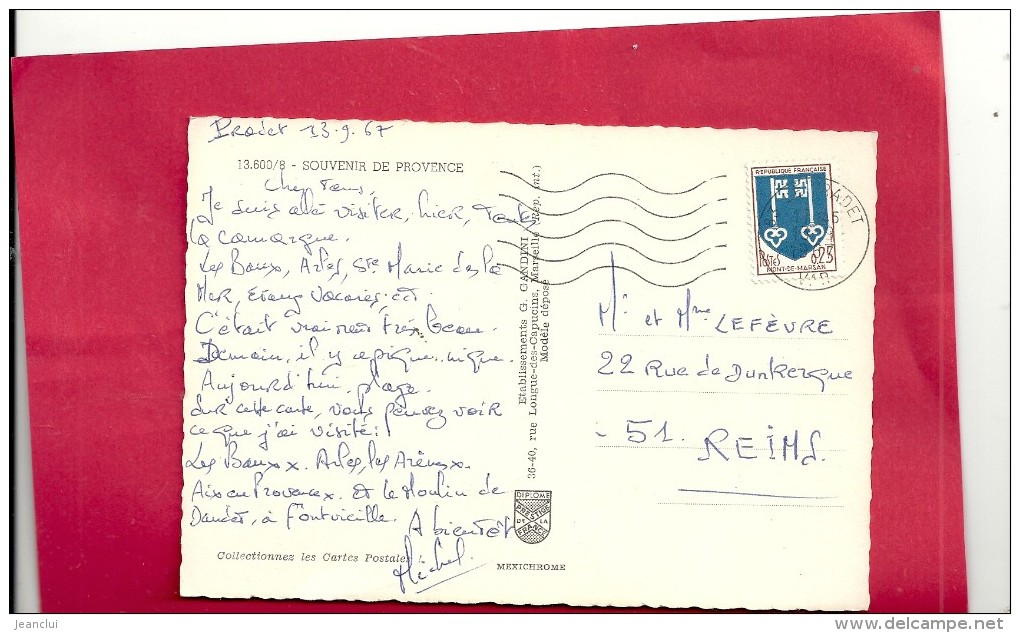 Pradet 13.9.67
13.600/8 - SOUVENIR DE PROVENCE
Chers Tous,
Je suis allé visiter, hier, toute
la Camargue.
Les Baux, Arles, Ste Marie de la
Mer, Etang Vacarès, ect
C'était vraiment très beau.
Demain, il y a pique-nique.
Aujourd'hui, plage.
Sur cette carte, vous pouvez voir
ce que j'ai visité:
Les Baux x. Arles, les Arènes x.
Aix en Provence x. et le Moulin de
Daudet, à Fontvieille.
A bientôt
Michel
Collectionnez les Cartes Postales
Etablissements G. GANDINI
36-40, rue Longue-des-Capucins, Marseille (Rép. Int.)
Modèle déposé
DIPLOME
PRESTIGE
DE LA
FRANCE
MEXICHROME
REPUBLIQUE FRANÇAISE
Postes 0,25
MONT-DE-MARSAN
Mr et Mme LEFÈVRE
22 Rue de Dunkerque
- 51. REIMS.
jeanclui
delcampe.net